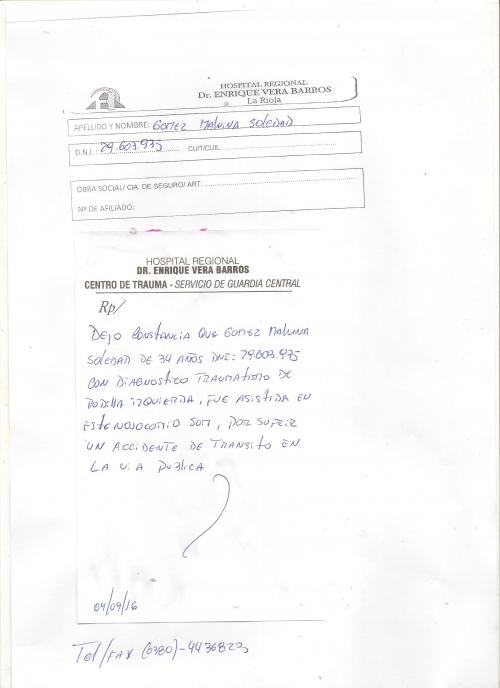 HOSPITAL REGIONAL
Dr. ENRIQUE VERA BARROS
La Rioja
APELLIDO Y NOMBRE: GOMEZ MALVINA SOLEDAD
D.N.I.: 29.603.975 CUIT/CUIL:
OBRA SOCIAL/ CIA. DE SEGURO/ ART:
Nº DE AFILIADO:
HOSPITAL REGIONAL
DR. ENRIQUE VERA BARROS
CENTRO DE TRAUMA - SERVICIO DE GUARDIA CENTRAL
Rp/
DEJO CONSTANCIA QUE GOMEZ MALVINA
SOLEDAD DE 34 AÑOS DNI: 29.603.975
CON DIAGNOSTICO TRAUMATISMO DE
RODILLA IZQUIERDA, FUE ASISTIDA EN
ESTE NOSOCOMIO, POR SUFRIR
UN ACCIDENTE DE TRANSITO EN
LA VIA PUBLICA
04/09/16
Tel/FAX (0380)-4436823